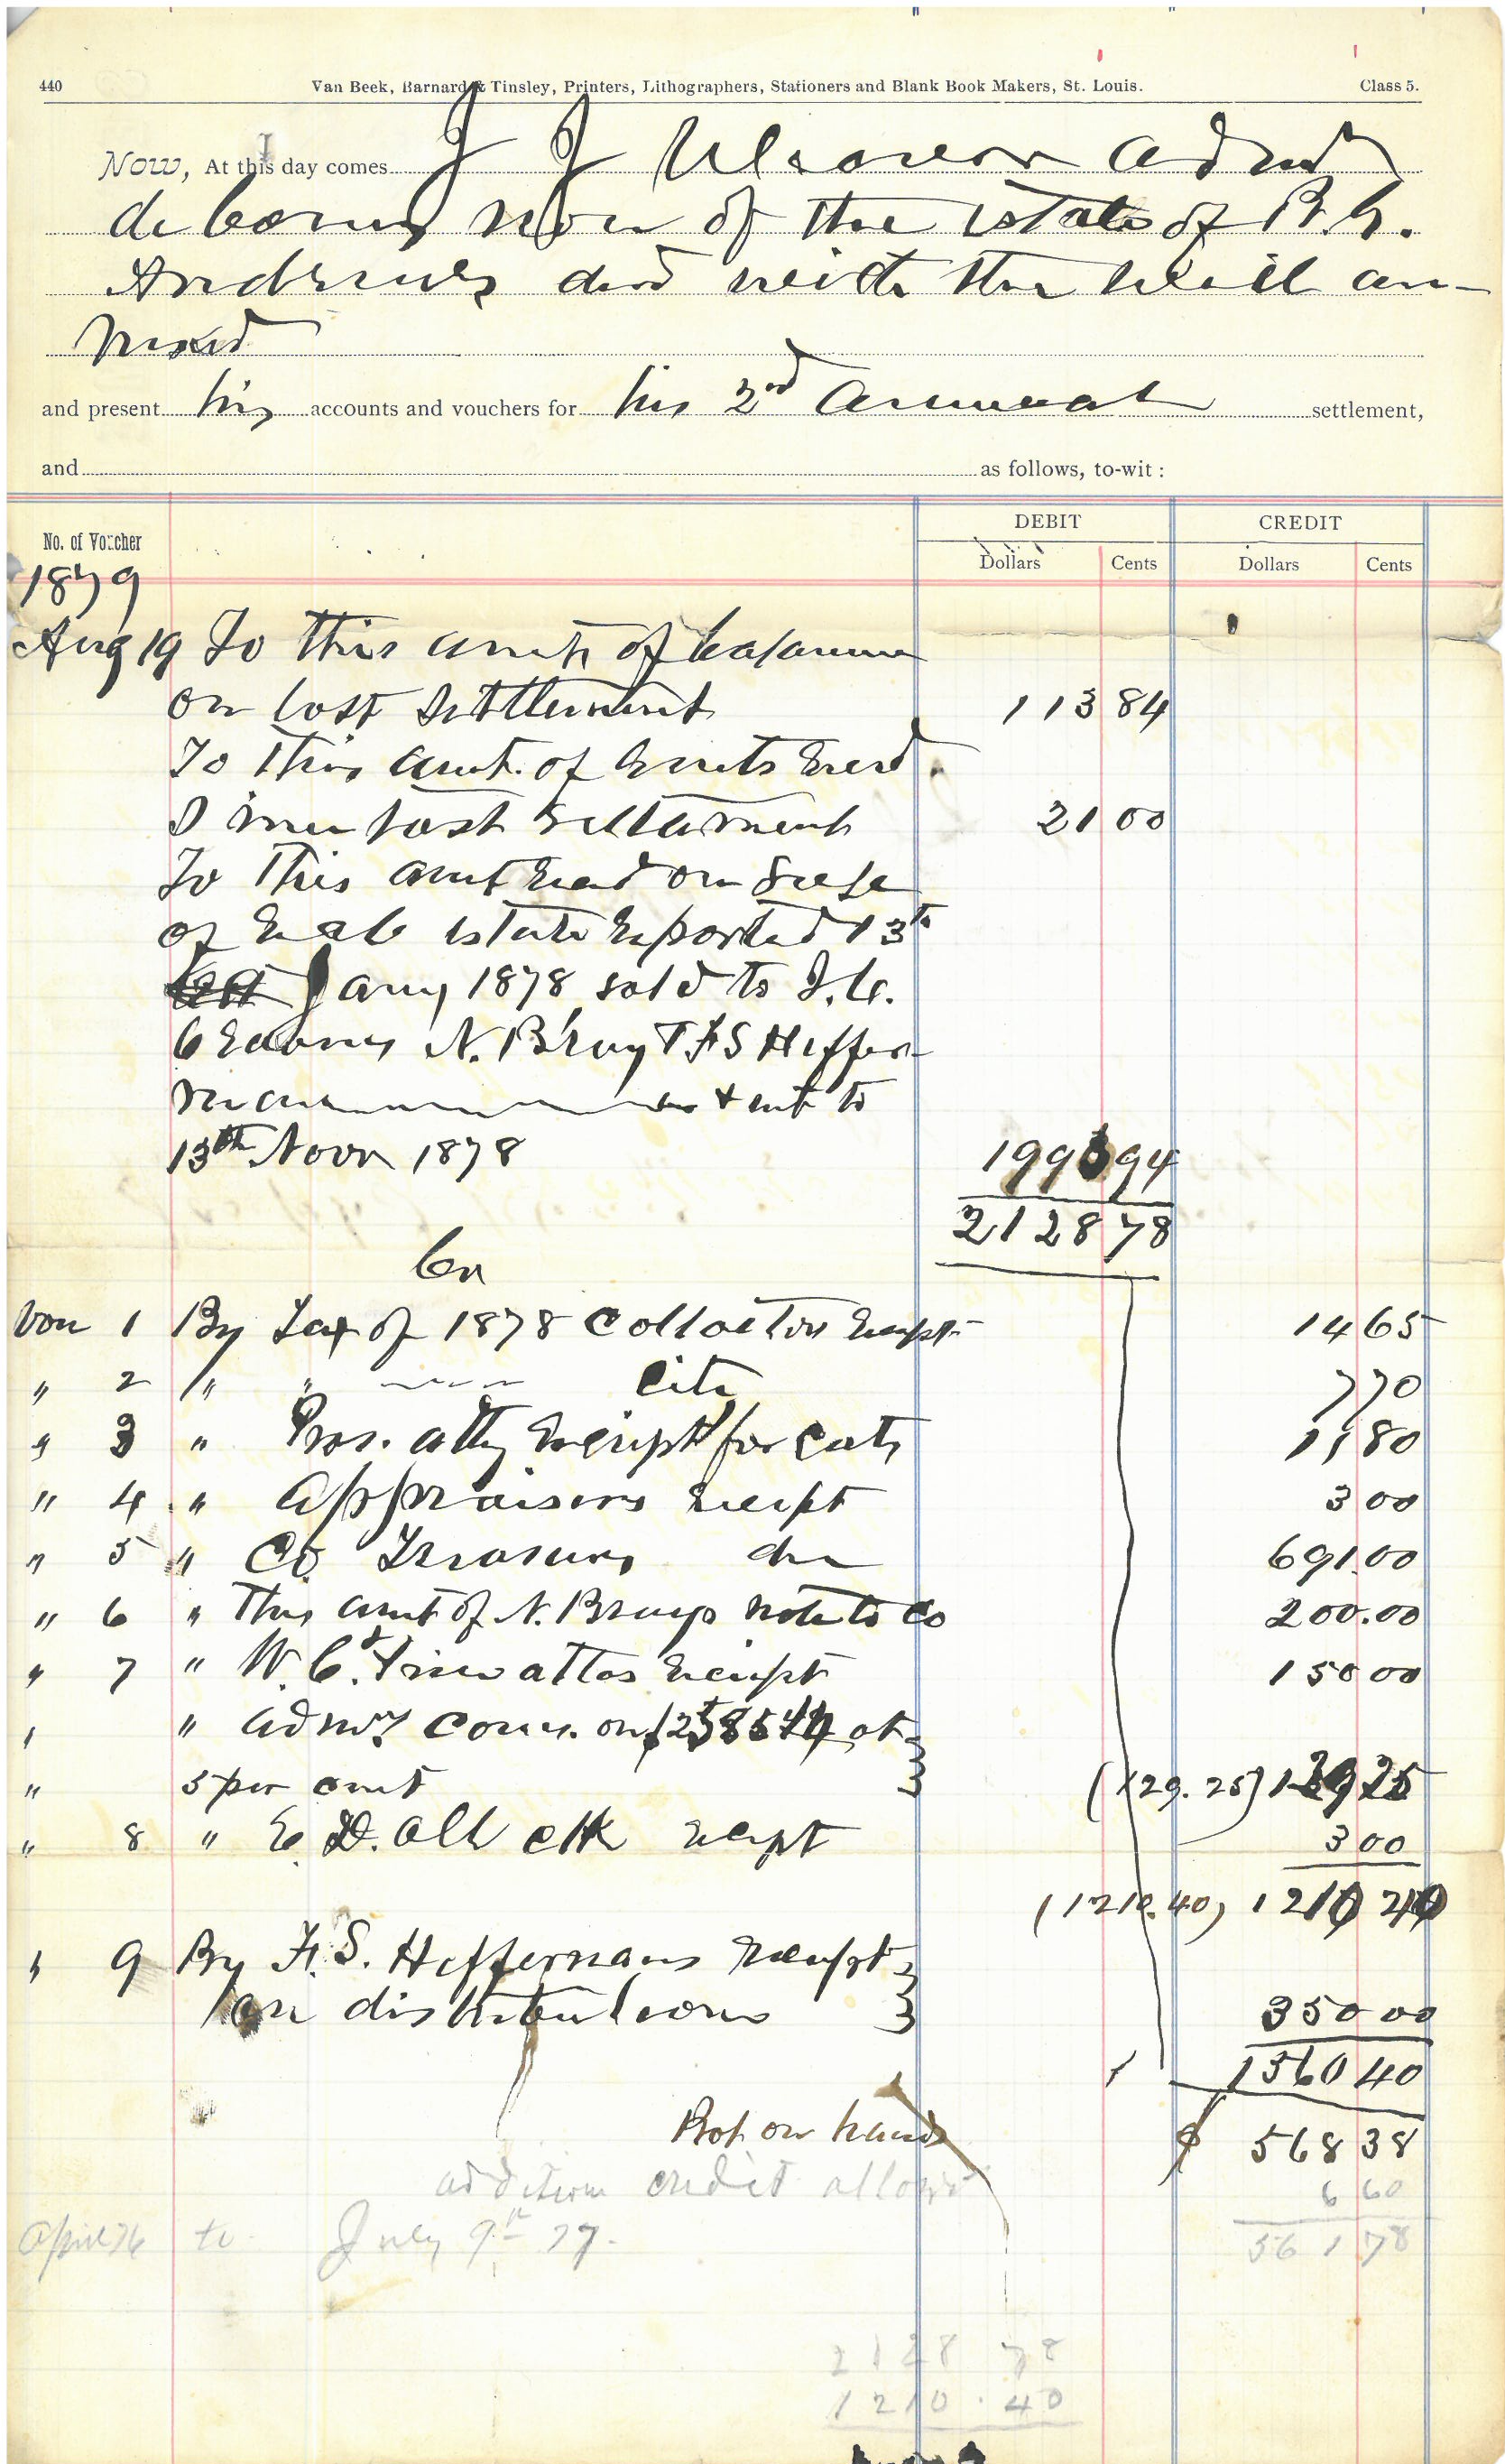 440 Van Beek, Barnard & Tinsley, Printers, Lithographers, Stationers and Blank Book Makers, St. Louis. Class 5.
Now, At this day comes J J Weaver Admr
de bonis non of the estate of B. G.
Andrews decd with the will an-
nexed
and present his accounts and vouchers for his 2nd Annual settlement,
and as follows, to-wit:
DEBIT CREDIT
No. of Voucher Dollars Cents Dollars Cents
1879
Aug 19 To this amt of balance
on last settlement 113 84
To this amt. of rents recd.
since last settlement 21 00
To this amt recd on sale
of real estate reported 13th
Jany 1878 sold to
N. Bray F S Heffer-
nan + int to
13th Novr 1878 1993 94
2128 78
Cr
Vou 1 By Tax of 1878 Collector receipt 14 65
" 2 " " City 7 70
" 3 " Pros. atty receipt for costs 11 80
" 4 " Appraisers receipt 3 00
" 5 " Co Treasurers do 691.00
" 6 " This amt of N. Brays note to Co 200.00
" 7 " W. C. attos receipt 150 00
" " Admrs Com. on $ at
" 5 per cent (129.25) 129 25
" 8 " E. D. Ott clk receipt 3 00
(1210.40) 1210 40
" 9 By F. S. Heffernans receipt
on distributions 350 00
1560 40
Bal on hand $ 568 38
addition credit allowd 6 60
April 76 to July 9th 77. 561 78
2128 78
1210.40